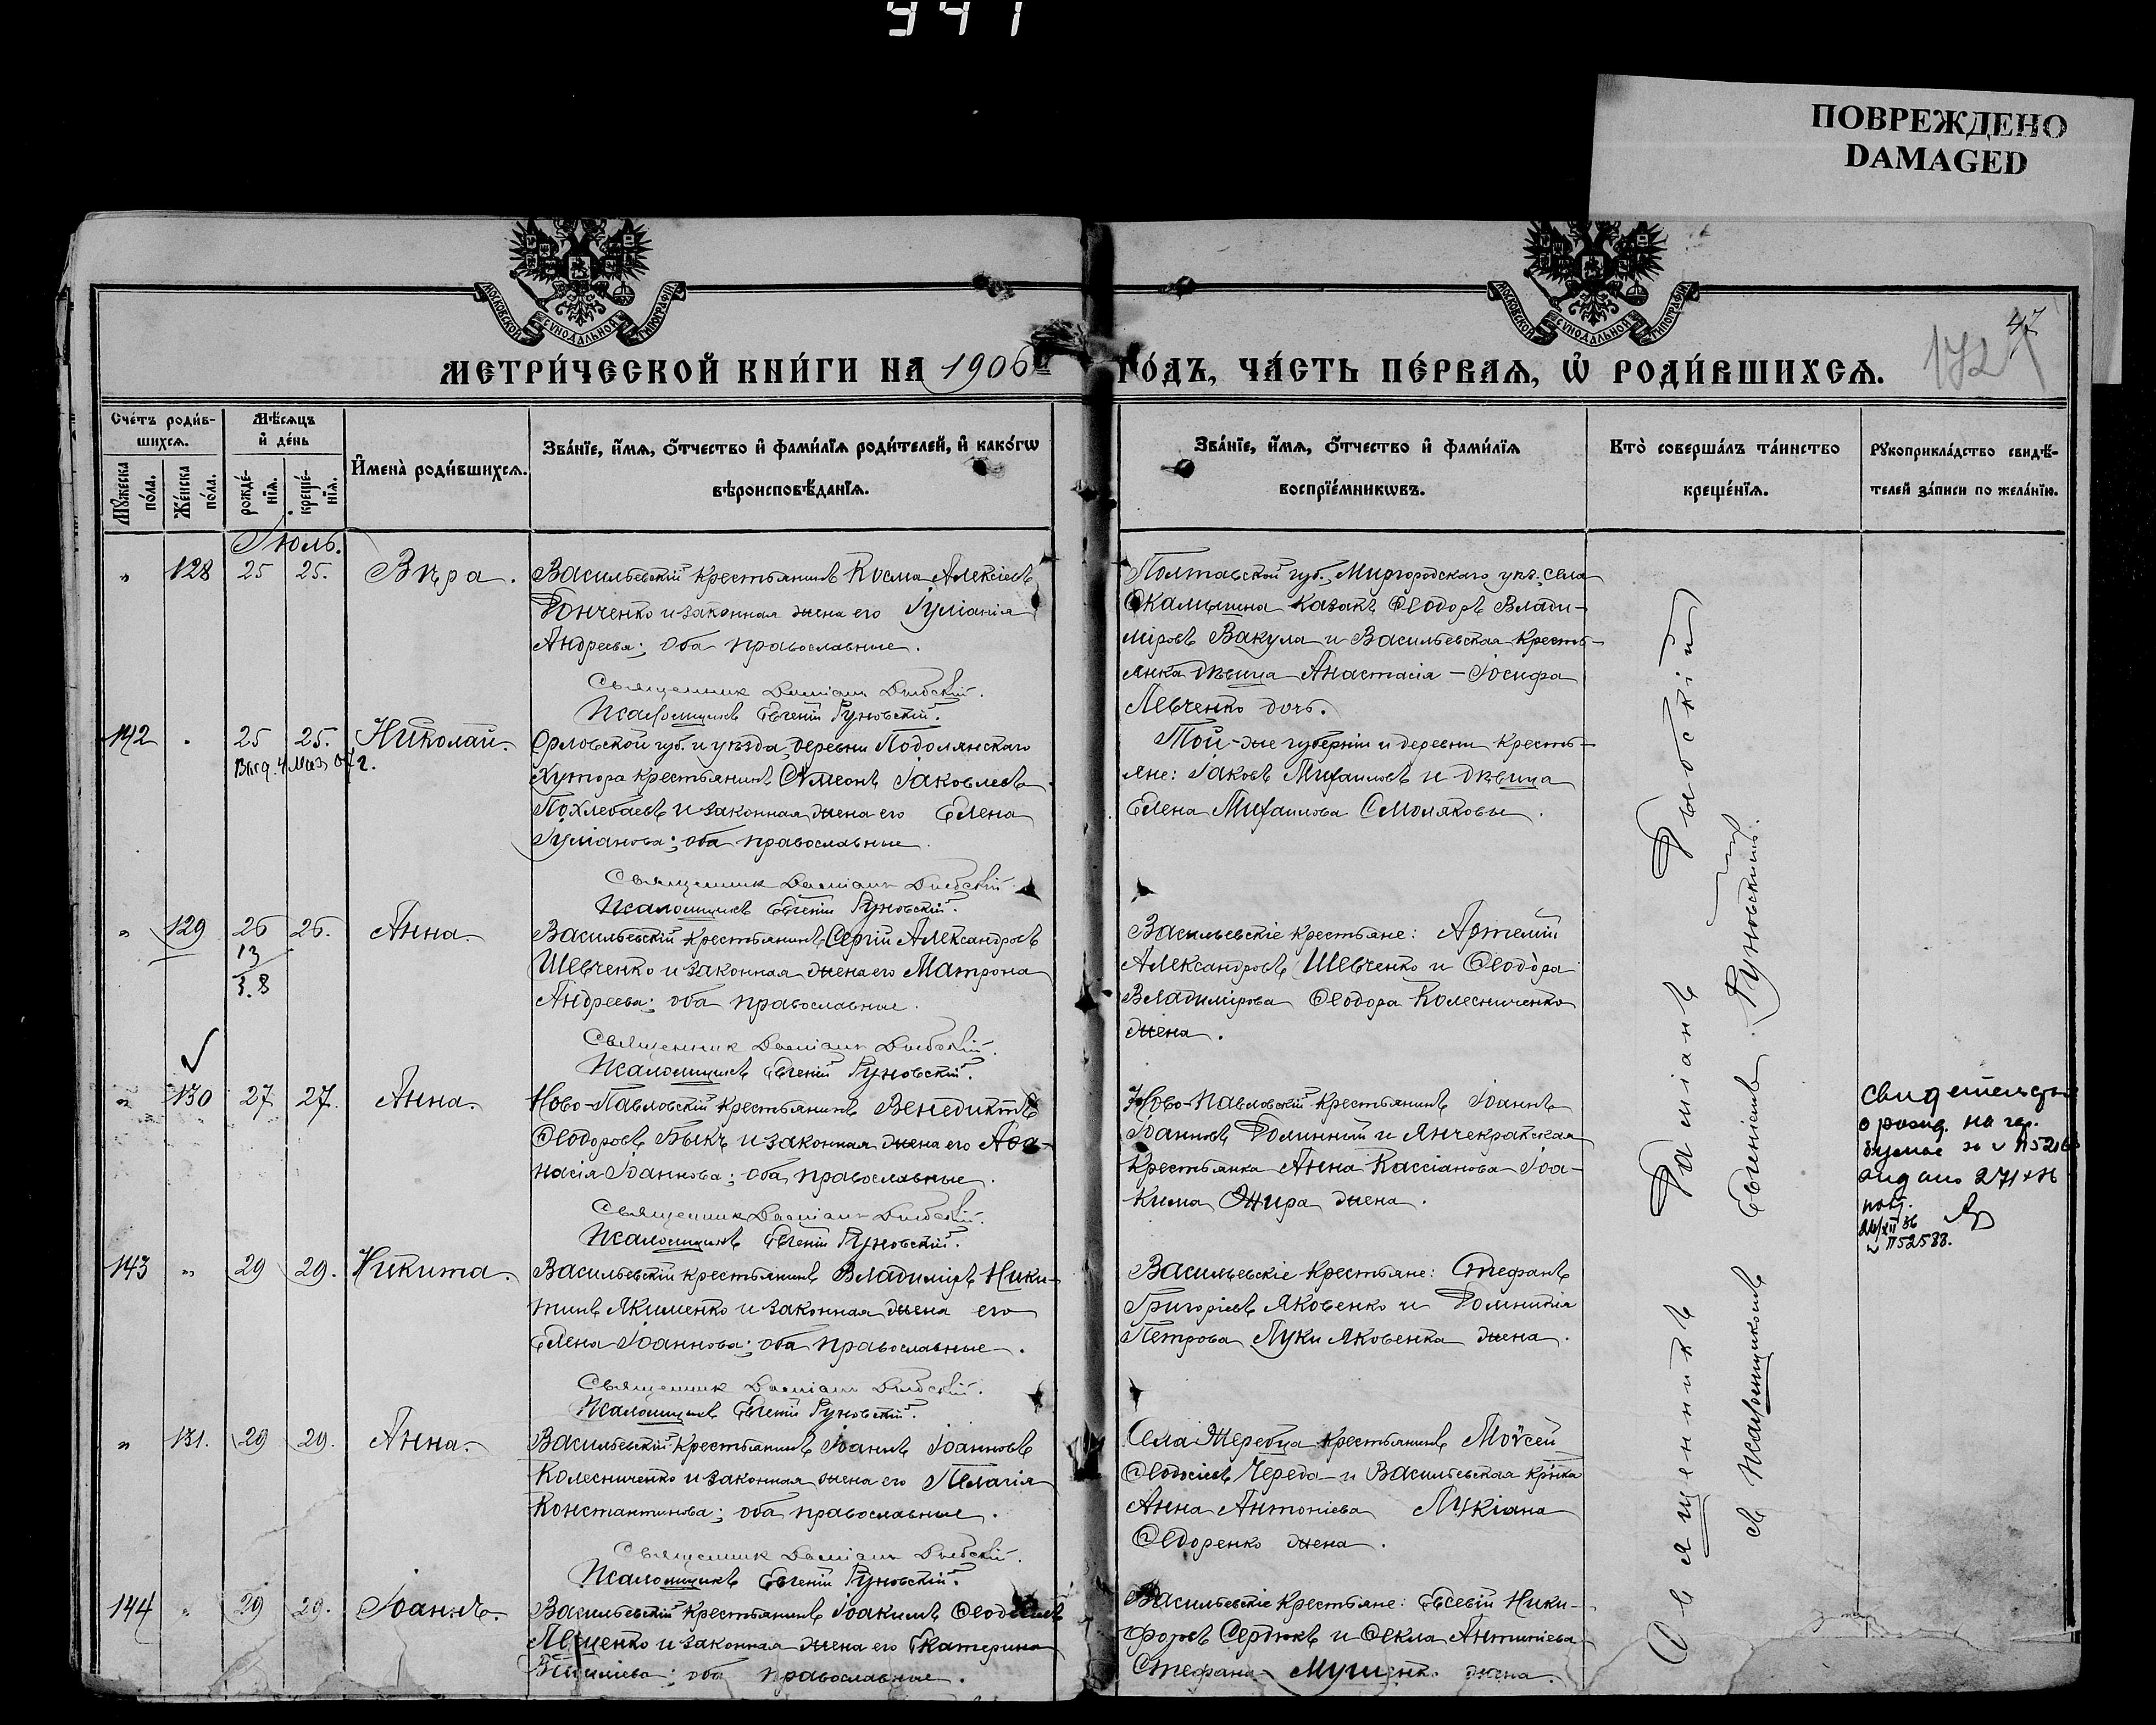 941
ПОВРЕЖДЕНО
DAMAGED
МОСКОВСКОЙ СУНОДАЛЬНОЙ ТИПОГРАФІИ
МОСКОВСКОЙ СУНОДАЛЬНОЙ ТИПОГРАФІИ
47
172
МЕТРИ́ЧЕСКОЙ КНИ́ГИ НА 1906 ГО́ДЪ, ЧА́СТЬ ПЕ́РВАѦ, Ѡ҆ РОДИ́ВШИХСѦ.
Сче́тъ роди́в-
шихсѧ.
Мѣ́сѧцъ
и҆ де́нь
Мꙋ́жеска по́ла.
Же́нска по́ла.
рожде́-нїѧ.
креще́-нїѧ.
И҆мена̀ роди́вшихсѧ.
Зва́нїе, и҆́мѧ, ѻ҆́тчество и҆ фами́лїѧ роди́телей, и҆ како́гѡ
вѣроисповѣ́данїѧ.
Зва́нїе, и҆́мѧ, ѻ҆́тчество и҆ фами́лїѧ
воспрїе́мникѡвъ.
Кто̀ соверша́лъ та́инство
креще́нїѧ.
Рꙋкоприкла́дство свидѣ́-
телей за́писи по жела́нїю.
Іюль.
" 128 25 25. Вѣра.
Васильевскій крестьянинъ Косма Алексіевъ
Гонченко и законная жена его Іуліанія
Андреева; оба православные.
Священник Дамиан
Псаломщикъ Евгеній Руновскій.
Полтавской губ., Миргородскаго уѣз. села
казакъ Ѳеодоръ Влади-
міровъ Вакула и Васильевская кресть-
янка дѣвица Анастасія - Іосифа
Левченко дочь.
142 " 25 25. Николай.
Выд. 4 Мая 07 г.
Орловской губ. и уѣзда, деревни Подолянскаго
хутора крестьянинъ Симеонъ Іаковлевъ
Похлебаевъ и законная жена его Елена
Іуліанова; оба православные.
Священник Дамиан
Псаломщикъ Евгеній Руновскій.
Той-же губерніи и деревни кресть-
яне: Іаковъ Михаиловъ и дѣвица
Елена Михаилова Смоляковы.
" 129 26 26. Анна.
13
Васильевскій крестьянинъ Сергій Александровъ
Шевченко и законная жена его Матрона
Андреева; оба православные.
Священник Дамиан
Псаломщикъ Евгеній Руновскій.
Васильевскіе крестьяне: Артемій
Александровъ Шевченко и Ѳеодора
Владимірова Ѳеодора Колесниченко
жена.
" 130 27 27. Анна.
Ново-Павловскій крестьянинъ Венедиктъ
Ѳеодоровъ Быкъ и законная жена его Аѳа-
насія Іоаннова; оба православные.
Священник Дамиан
Псаломщикъ Евгеній Руновскій.
Ново-Павловскій крестьянинъ Іоаннъ
Іоанновъ и Янчекракская
крестьянка Анна Кассіанова Іоа-
кима Жира жена.
о рожд. на гер.
бумаге
№52588.
143 " 29 29. Никита.
Васильевскій крестьянинъ Владиміръ Ники-
тинъ Якименко и законная жена его
Елена Іоаннова; оба православные.
Священник Дамиан
Псаломщикъ Евгеній Руновскій.
Васильевскіе крестьяне: Стефанъ
Григоріевъ Яковенко и Домникія
Петрова Луки Яковенка жена.
" 131. 29 29. Анна.
Васильевскій крестьянинъ Іоаннъ Іоанновъ
Колесниченко и законная жена его Пелагія
Константинова; оба православные.
Священник Дамиан
Псаломщикъ Евгеній Руновскій.
Села Жеребца крестьянинъ Моѵсей
Ѳеодосіевъ Череда и Васильевская кр-нка
Анна Антоніева Лукіана
Ѳедоренко жена.
144 " 29 29. Іоаннъ.
Васильевскій крестьянинъ Іоакимъ
Лещенко и законная жена его Екатерина
оба православные.
Васильевскіе крестьяне: Евсевій Ники-
форовъ Сердюкъ и Ѳекла
Стефана жена.
Священникъ Даміанъ
съ псаломщикомъ Евгеніемъ Руновскимъ.